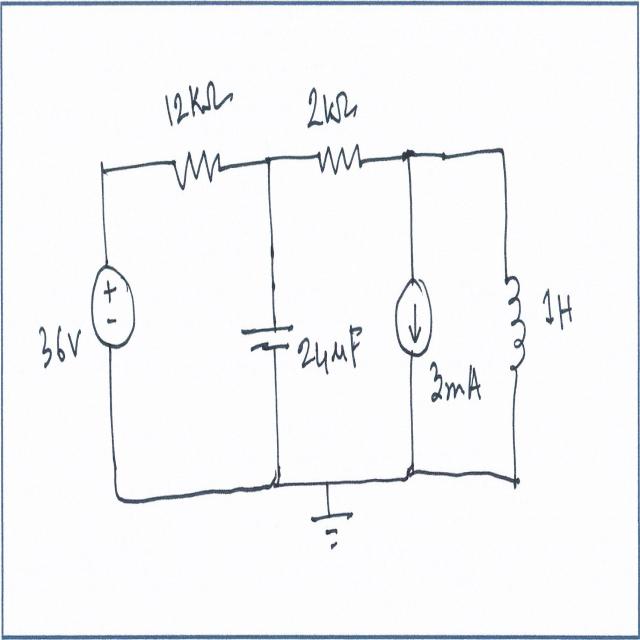 12KΩ
2kΩ
+
-
36V
24μF
3mA
1H